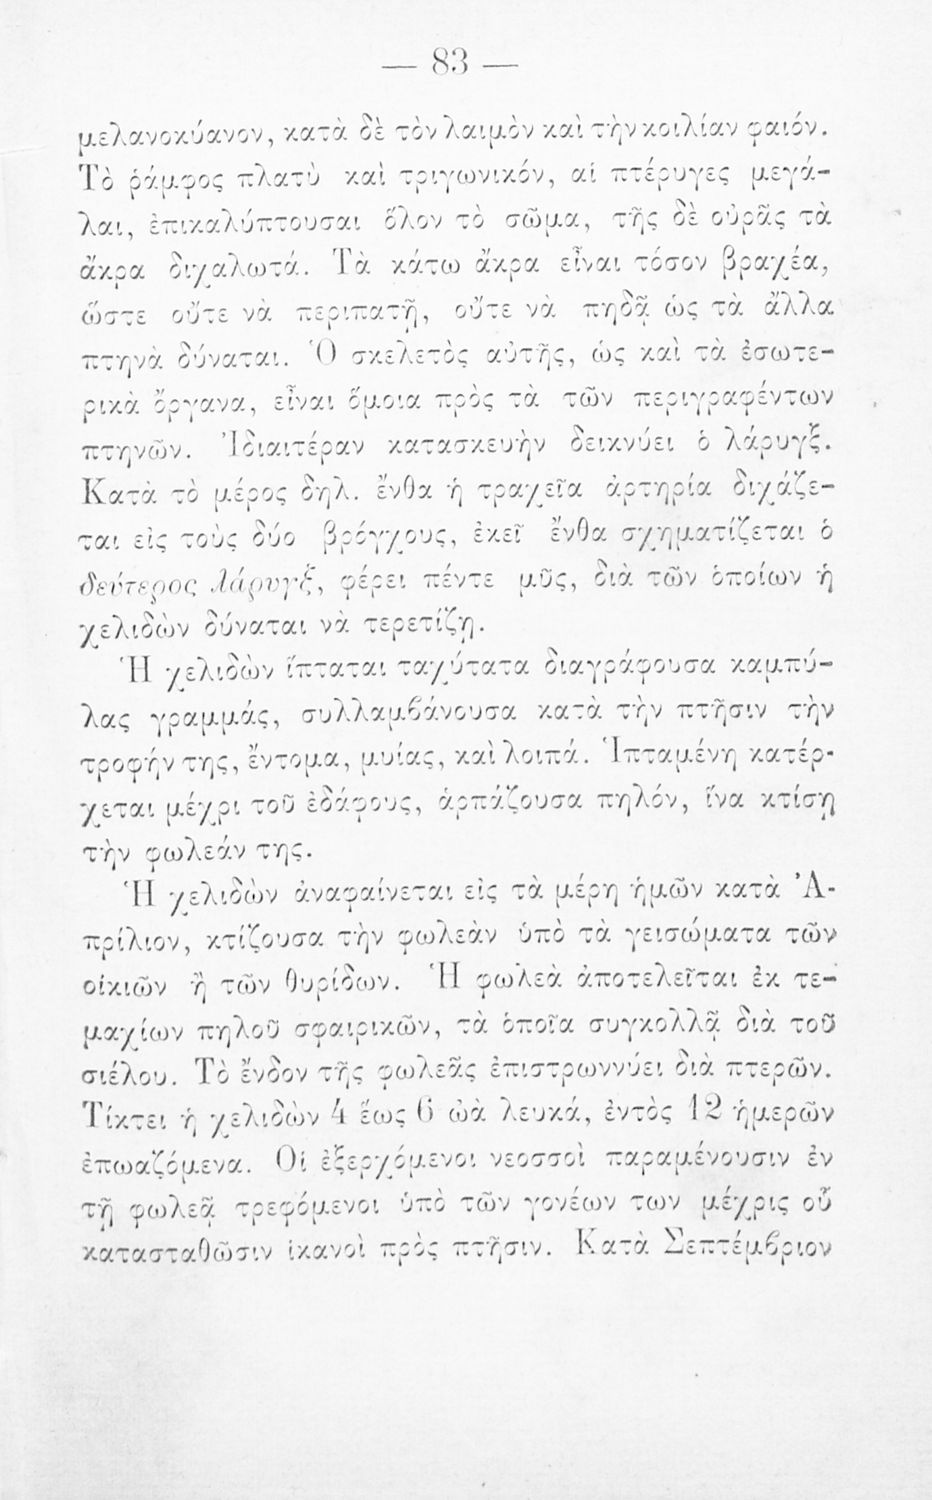 — 83 —
μελανοκύανον, κατὰ δὲ τὸν λαιμὸν καὶ τὴν κοιλίαν φαιόν.
Τὸ ῥάμφος πλατὺ καὶ τριγωνικόν, αἱ πτέρυγες μεγά-
λαι, ἐπικαλύπτουσαι ὅλον τὸ σῶμα, τῆς δὲ οὐρᾶς τὰ
ἄκρα διχαλωτά. Τὰ κάτω ἄκρα εἶναι τόσον βραχέα,
ὥστε οὔτε νὰ περιπατῇ, οὔτε νὰ πηδᾷ ὡς τὰ ἄλλα
πτηνὰ δύναται. Ὁ σκελετὸς αὐτῆς, ὡς καὶ τὰ ἐσωτε-
ρικὰ ὄργανα, εἶναι ὅμοια πρὸς τὰ τῶν περιγραφέντων
πτηνῶν. Ἰδιαιτέραν κατασκευὴν δεικνύει ὁ λάρυγξ.
Κατὰ τὸ μέρος δηλ. ἔνθα ἡ τραχεῖα ἀρτηρία διχάζε-
ται εἰς τοὺς δύο βρόγχους, ἐκεῖ ἔνθα σχηματίζεται ὁ
δεύτερος λάρυγξ, φέρει πέντε μῦς, διὰ τῶν ὁποίων ἡ
χελιδὼν δύναται νὰ τερετίζῃ.
Ἡ χελιδὼν ἵπταται ταχύτατα διαγράφουσα καμπύ-
λας γραμμάς, συλλαμβάνουσα κατὰ τὴν πτῆσιν τὴν
τροφήν της, ἔντομα, μυίας, καὶ λοιπά. Ἱπταμένη κατέρ-
χεται μέχρι τοῦ ἐδάφους, ἁρπάζουσα πηλόν, ἵνα κτίσῃ
τὴν φωλεάν της.
Ἡ χελιδὼν ἀναφαίνεται εἰς τὰ μέρη ἡμῶν κατὰ Ἀ-
πρίλιον, κτίζουσα τὴν φωλεὰν ὑπὸ τὰ γεισώματα τῶν
οἰκιῶν ἢ τῶν θυρίδων. Ἡ φωλεὰ ἀποτελεῖται ἐκ τε-
μαχίων πηλοῦ σφαιρικῶν, τὰ ὁποῖα συγκολλᾷ διὰ τοῦ
σιέλου. Τὸ ἔνδον τῆς φωλεᾶς ἐπιστρωννύει διὰ πτερῶν.
Τίκτει ἡ χελιδὼν 4 ἕως 6 ὠὰ λευκά, ἐντὸς 12 ἡμερῶν
ἐπωαζόμενα. Οἱ ἐξερχόμενοι νεοσσοὶ παραμένουσιν ἐν
τῇ φωλεᾷ τρεφόμενοι ὑπὸ τῶν γονέων των μέχρις οὗ
κατασταθῶσιν ἱκανοὶ πρὸς πτῆσιν. Κατὰ Σεπτέμβριον